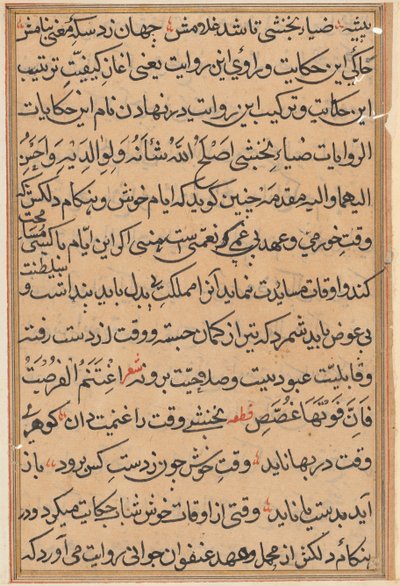 بیشه ضیاء بخشی تا شد غلامش جهان زد سکهٔ معنی بنامش
حاکی این حکایت و راوی این روایت یعنی اغاز کیفیّت ترتیب
این حکایت و ترکیب این روایت در نهادن نام این حکایات
الروایات ضیاء نخشبی اصلح اللّه شانه و لوالدیه و احسن
الیهما والیه مقدمه چنین کوید که ایام خوش و هنکام دلکش که
وقت خورمی و عهد بی غمی نعمتی است مهنی اکر این ایام با کسی مسامحت
کند و اوقات مساعدت نماید آنرا مملکت بی بدل باید پنداشت و سلطنت
بی عوض باید شمرد که تیر از کمان جسته و وقت از دست رفته
و قابلیّت عود نیست و صلاحیّت برو نه شعر اغتنم الفرصت
فانّ فوتها غصص قطعه نخشبی وقت را غنیمت دان کوهری
وقت در بها ناید وقت خوش چون ز دست کس برود باز
آید بدست یا ناید وقتی از اوقات خوش شباب حکایت میکرد و در
هنکام دلکش از محل و عهد عنفوان جوانی روایت می آورد که